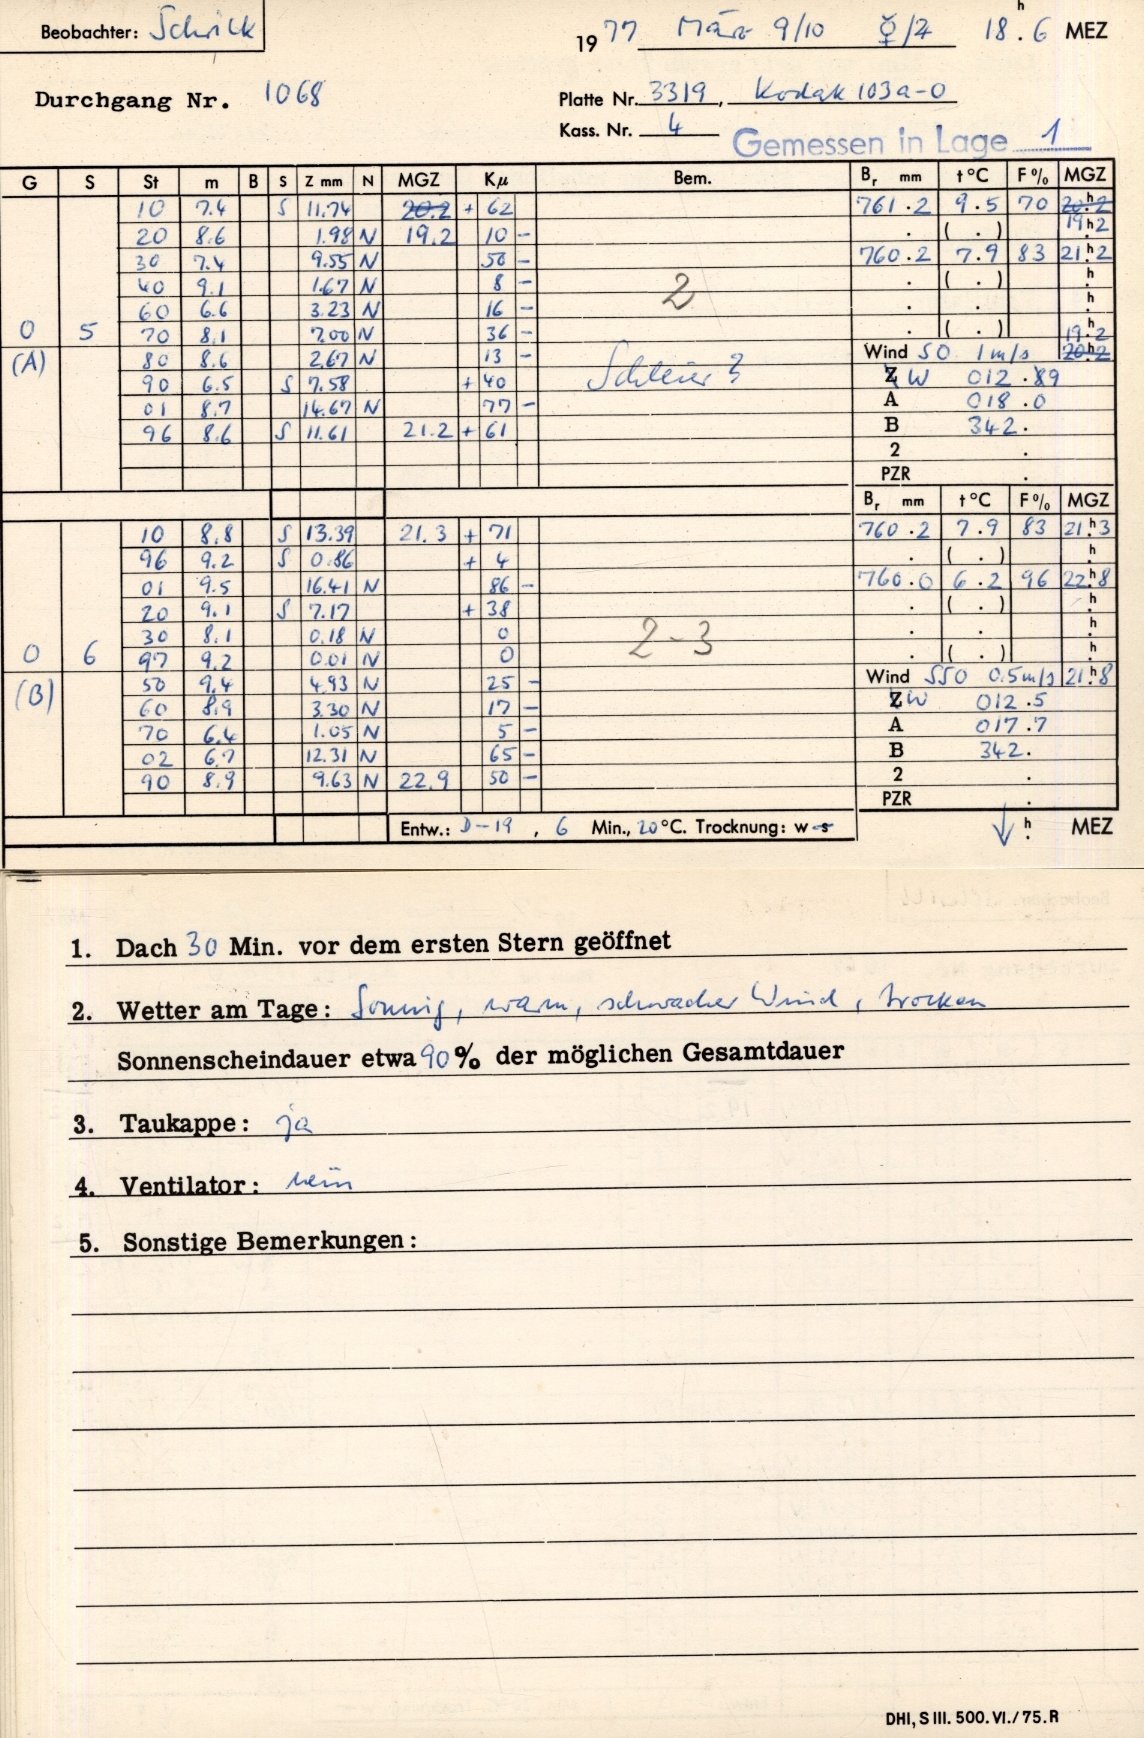 Beobachter: Schrick
1977 März 9/10 ☿/♃ 18.h6 MEZ
Durchgang Nr. 1068
Platte Nr. 3319, Kodak 103a-O
Kass. Nr. 4
Gemessen in Lage 1
G S St m B S Z mm N MGZ Kμ Bem. Br mm t °C F % MGZ
10 7.4 S 11.74 20.2 + 62 761.2 9.5 70 20.h2
20 8.6 1.98 N 19.2 10 - . ( . ) 19.h2
30 7.4 9.55 N 50 - 760.2 7.9 83 21.h2
40 9.1 1.67 N 8 - 2 . ( . ) h
60 6.6 3.23 N 16 - . . h
0 5 70 8.1 7.00 N 36 - . ( . ) 19.h2
(A) 80 8.6 2.67 N 13 - Wind SO 1 m/s 20.h2
90 6.5 S 7.58 + 40 Schleier? ZW 012.89
01 8.7 14.67 N 77 - A 018.0
96 8.6 S 11.61 21.2 + 61 B 342.
2 .
PZR .
Br mm t °C F % MGZ
10 8.8 S 13.39 21.3 + 71 760.2 7.9 83 21.h3
96 9.2 S 0.86 + 4 . ( . ) h
01 9.5 16.41 N 86 - 760.0 6.2 96 22.h8
20 9.1 S 7.17 + 38 . ( . ) h
30 8.1 0.18 N 0 2-3 . . h
0 6 97 9.2 0.01 N 0 . ( . ) h
(B) 50 9.4 4.93 N 25 - Wind SSO 0.5 m/s 21.h8
60 8.9 3.30 N 17 - ZW 012.5
70 6.4 1.05 N 5 - A 017.7
02 6.7 12.31 N 65 - B 342.
90 8.9 9.63 N 22.9 50 - 2 .
PZR .
Entw.: D-19, 6 Min., 20 °C. Trocknung: w s ↓ h. MEZ
1. Dach 30 Min. vor dem ersten Stern geöffnet
2. Wetter am Tage: Sonnig, warm, schwacher Wind, trocken
Sonnenscheindauer etwa 90 % der möglichen Gesamtdauer
3. Taukappe: ja
4. Ventilator: nein
5. Sonstige Bemerkungen:
DHI, S III. 500. VI./75. R